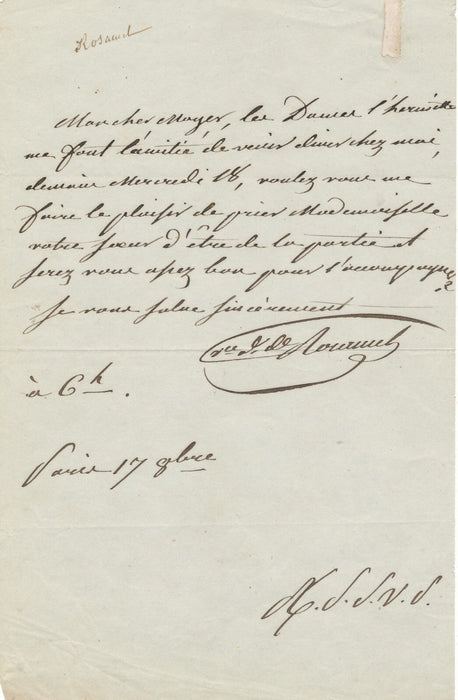 Rosamel
Mon cher Mayer, les Dames l'herminette
me font l'amitié de venir diner chez moi,
demain Mercredi 18, voulez vous me
faire le plaisir de prier Mademoiselle
votre sœur d'être de la partie et
serez vous assez bon pour l'accompagner?
Je vous salue sincèrement
Vce A. de Rosamel
à 6h.
Paris 17 8bre
R.S.S.V.S.